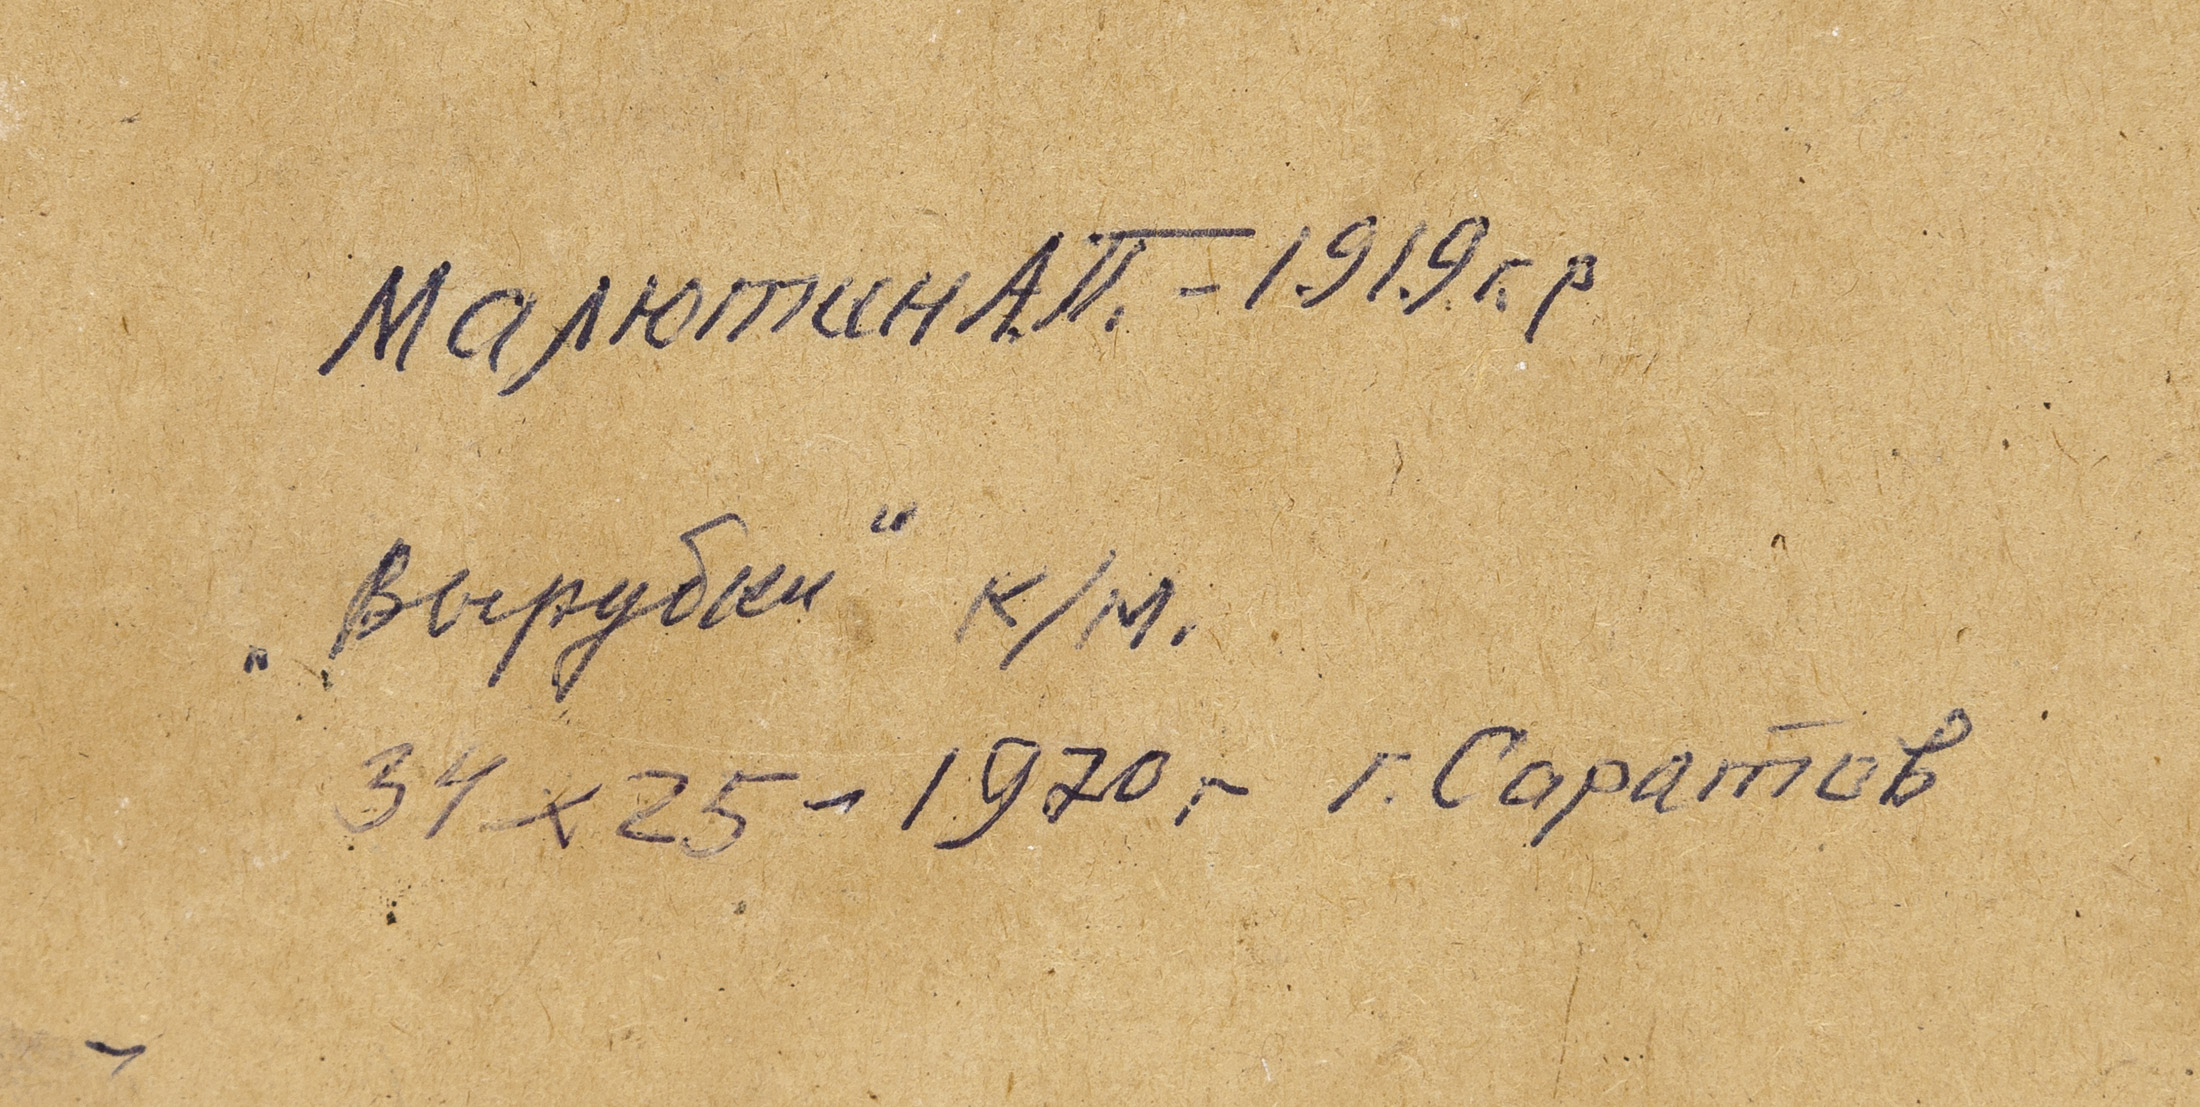 Малютин А.П. - 1919 г.р
„Вырубки“ к/м.
34 х 25 - 1970 г г. Саратов